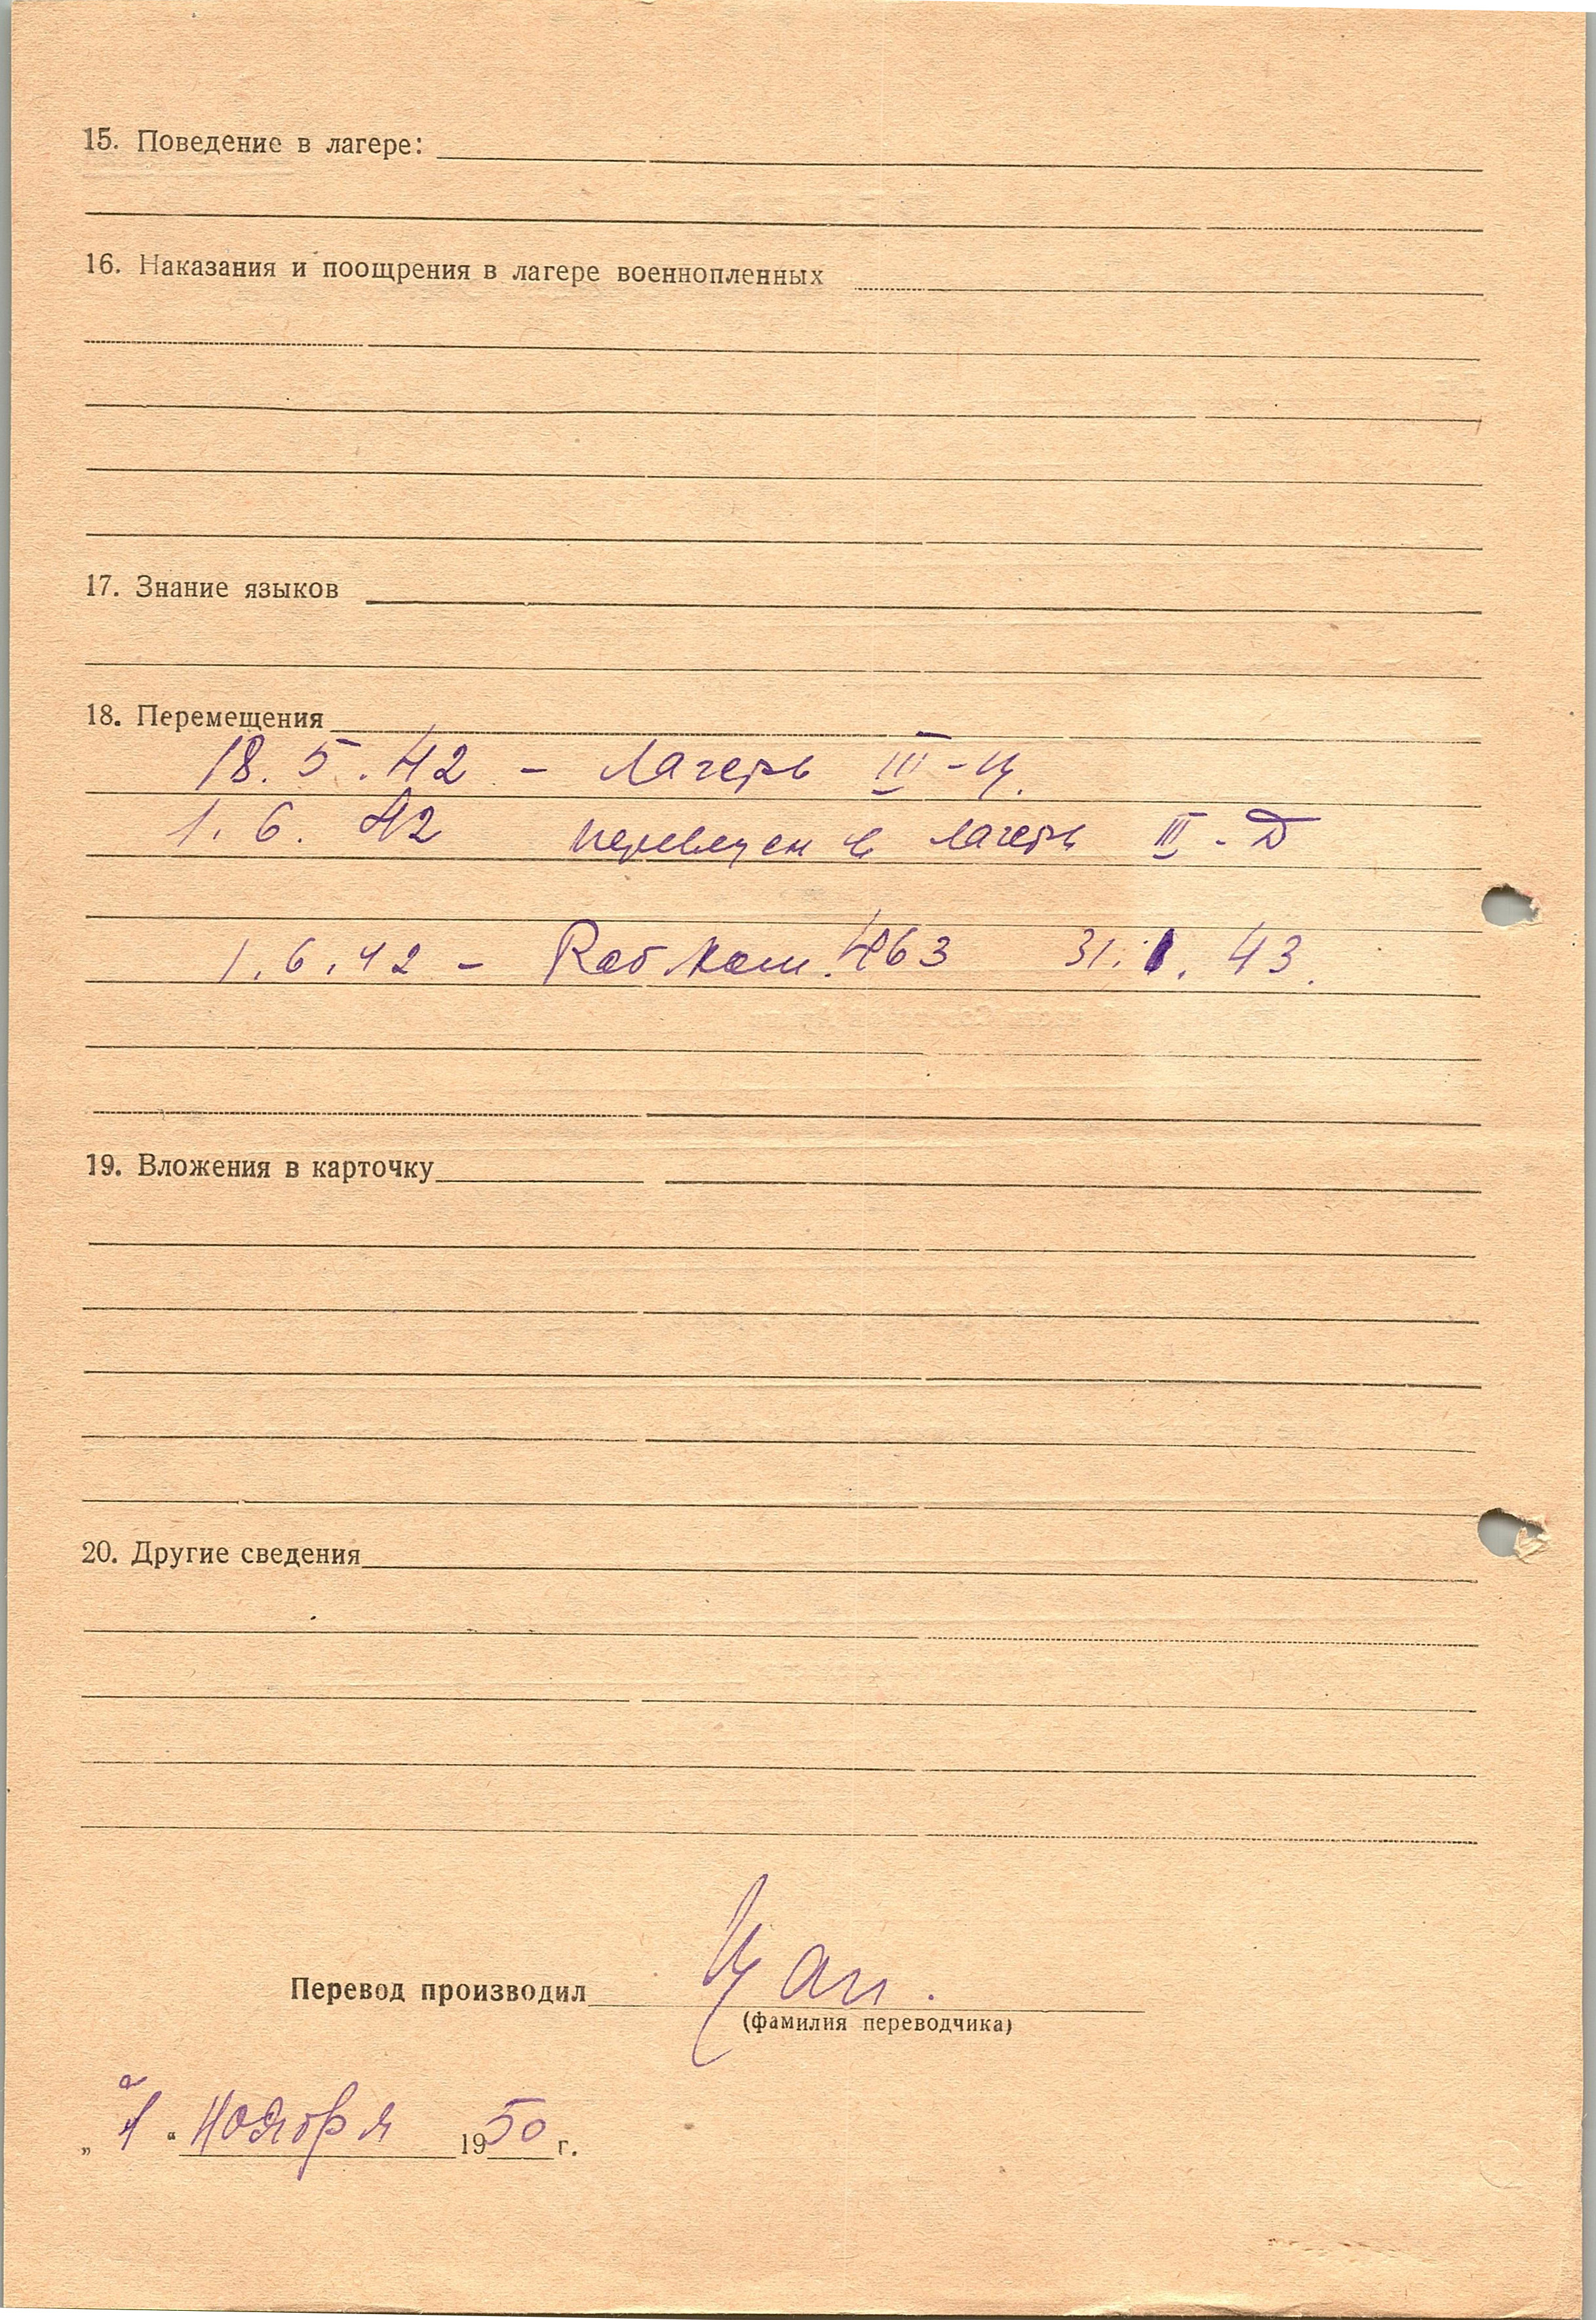 15. Поведение в лагере:
16. Наказания и поощрения в лагере военнопленных
17. Знание языков
18. Перемещения
18. 5. 42 - Лагерь III-Ц.
1. 6. 42 переведен в лагерь III-Д
1. 6. 42 - Раб. Ком. 463 31. 1. 43.
19. Вложения в карточку
20. Другие сведения
Перевод производил Цап.
(фамилия переводчика)
„ 1 “ Ноября 1950 г.